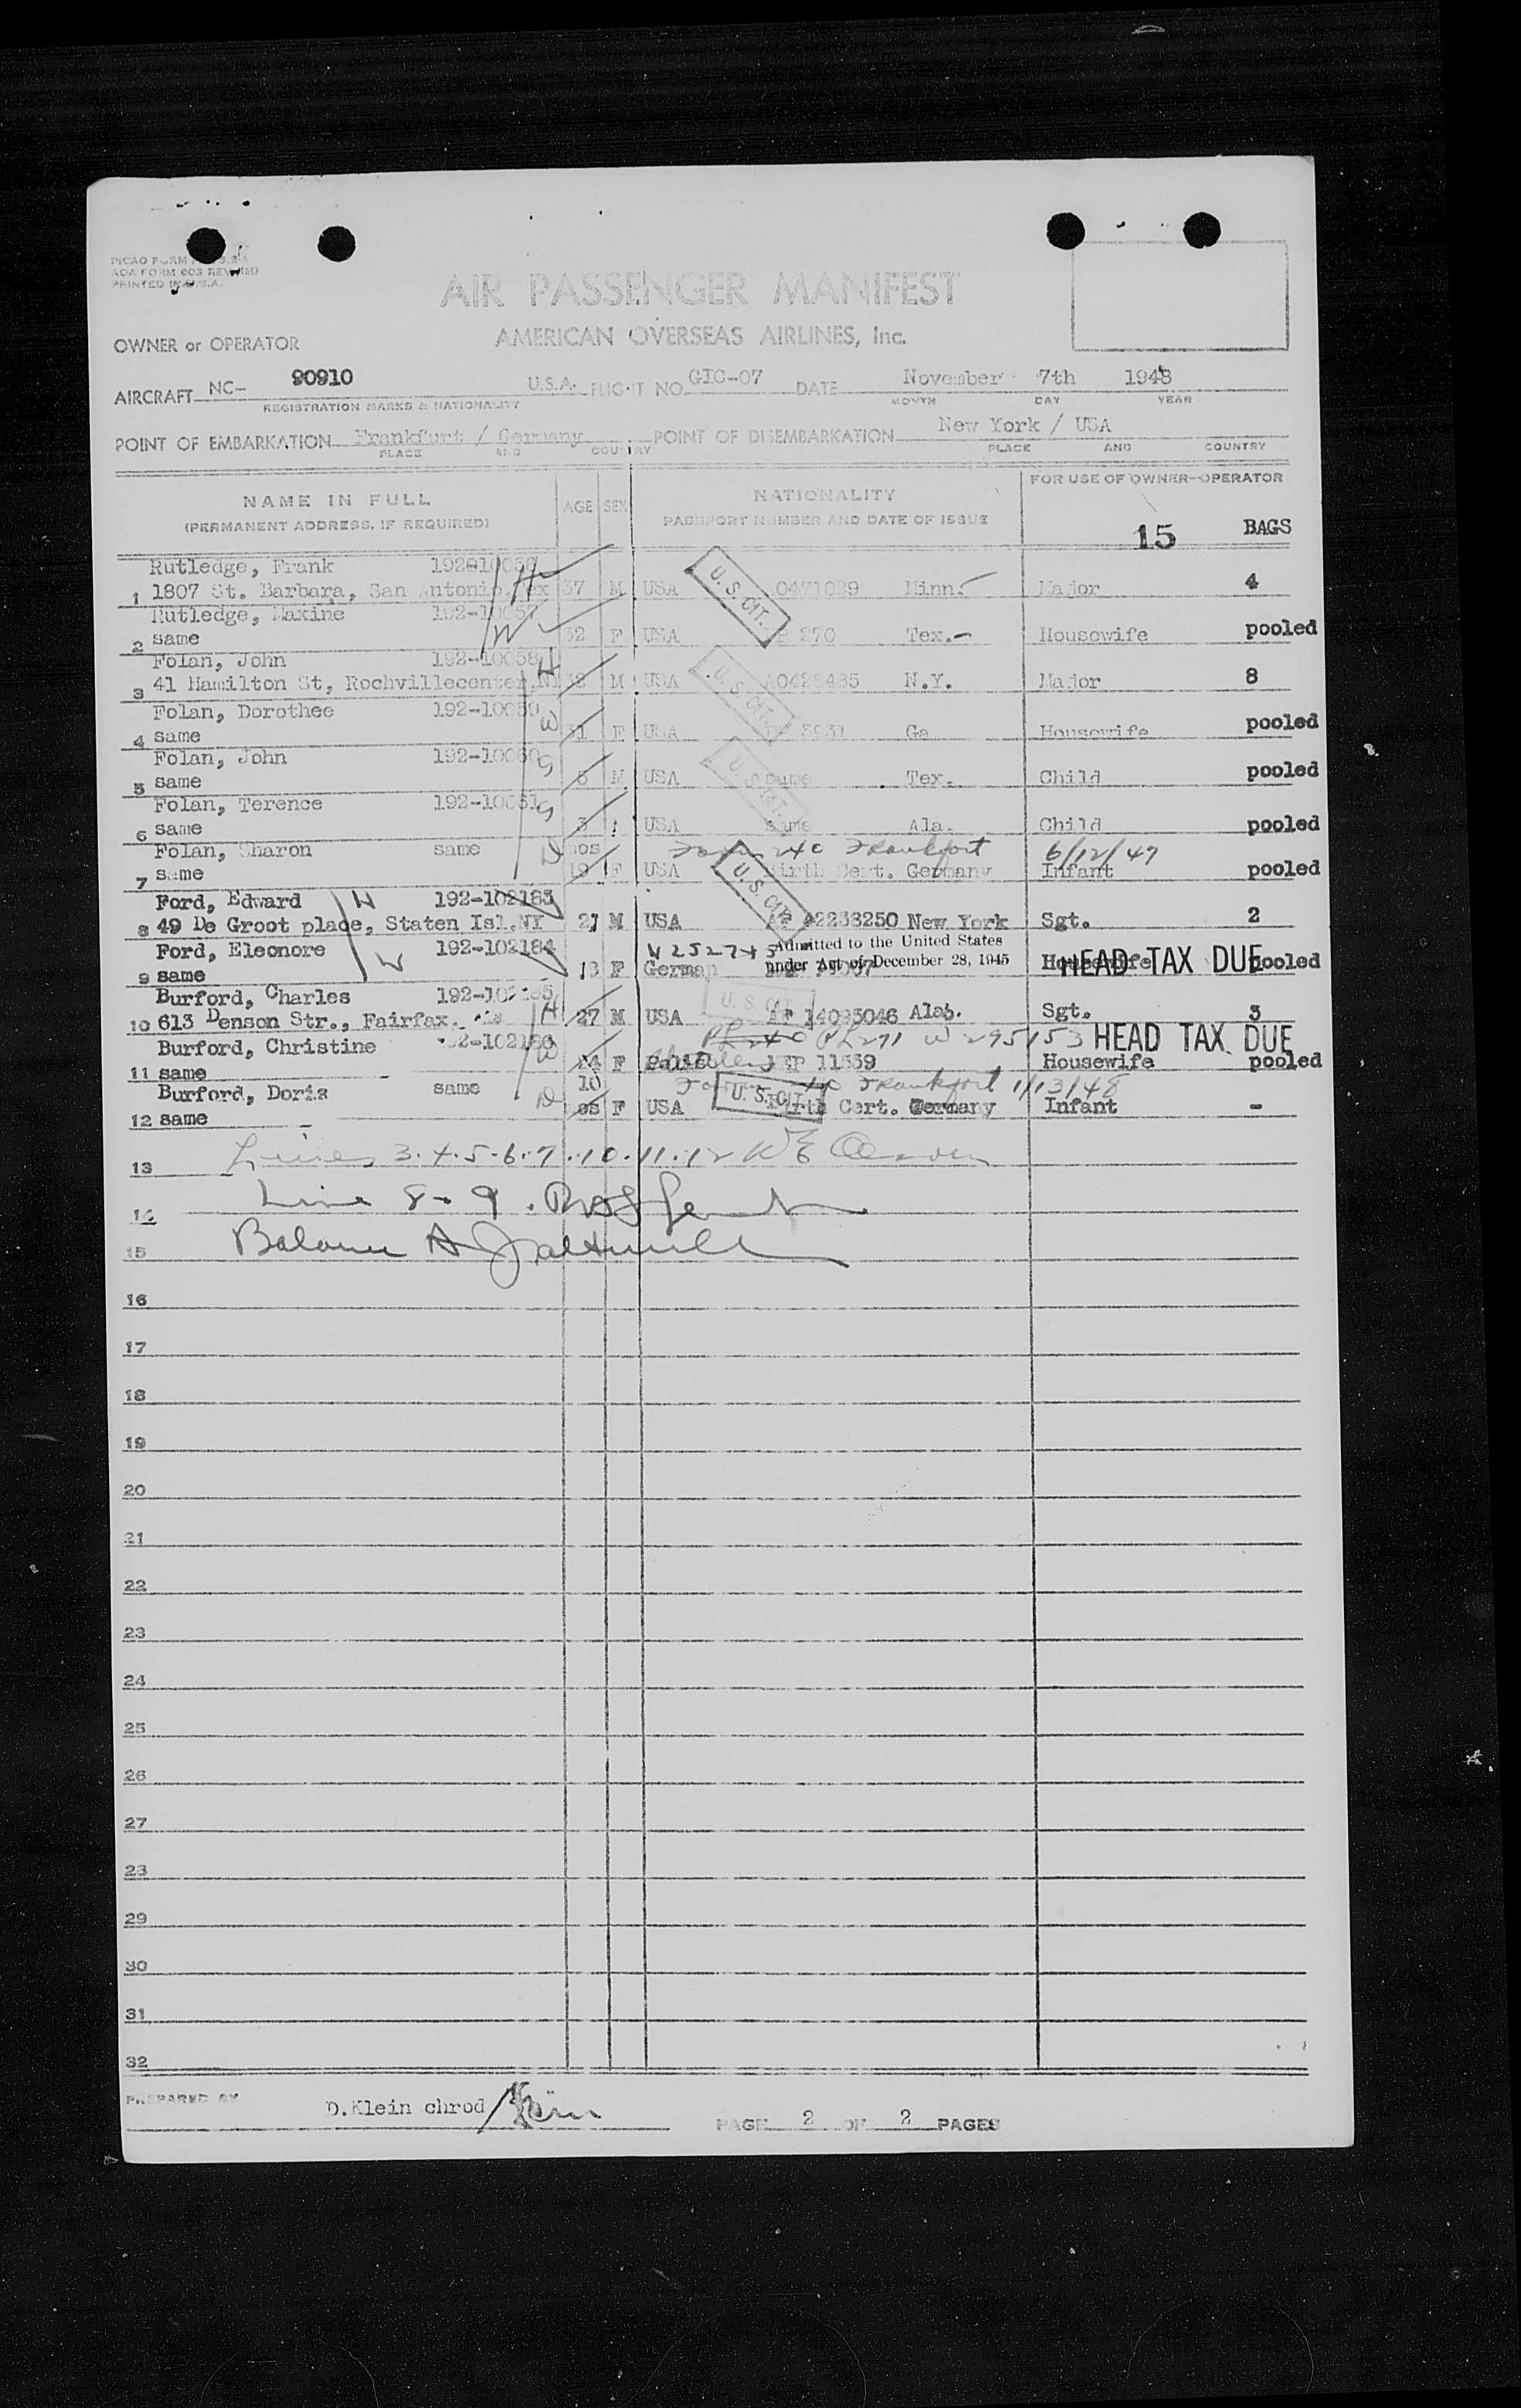 AOA FORM 603 REV
PRINTED IN U.S.A.
AIR PASSENGER MANIFEST
AMERICAN OVERSEAS AIRLINES, Inc.
OWNER or OPERATOR
AIRCRAFT NC- 90910 U.S.A. FLIGHT NO. GIC-07 DATE November 7th 1948
REGISTRATION MARKS & NATIONALITY MONTH DAY YEAR
POINT OF EMBARKATION Frankfurt / Germany POINT OF DISEMBARKATION New York / USA
PLACE AND COUNTRY PLACE AND COUNTRY
NAME IN FULL AGE SEX NATIONALITY FOR USE OF OWNER-OPERATOR
(PERMANENT ADDRESS, IF REQUIRED) PASSPORT NUMBER AND DATE OF ISSUE 15 BAGS
Rutledge, Frank
1 1807 St. Barbara, San Antonio, Tex 37 M USA U.S. CIT. 0471029 Minn. Major 4
Rutledge, Maxine 192-10057 W
2 same 32 F USA 270 Tex.- Housewife pooled
Folan, John 192-10058 H
3 41 Hamilton St, Rochvillecenter, NY M USA U.S. CIT. N.Y. Major 8
Folan, Dorothee 192-10059 W
4 same 31 F USA Ga Housewife pooled
Folan, John 192-10060 S
5 same 5 M USA U.S. CIT. same Tex. Child pooled
Folan, Terence 192-10061 S
6 same 3 USA same Ala. Child pooled
Folan, Sharon same D mos 240 Frankfort 6/12/47
7 same 19 F USA Birth Cert. Germany Infant pooled
Ford, Edward H 192-102183 U.S. CIT.
8 49 De Groot place, Staten Isl. NY 21 M USA 42238250 New York Sgt. 2
Ford, Eleonore W 192-102184 Admitted to the United States
9 same F German under Act of December 28, 1945 Housewife HEAD TAX DUE pooled
Burford, Charles 192-102185 H U.S. CIT.
10 613 Denson Str., Fairfax, 27 M USA AF 14095046 Alab. Sgt. 3
Burford, Christine 192-102186 W PL271 W 295153 HEAD TAX DUE
11 same 24 F 11539 Housewife pooled
Burford, Doris same D 10 Frankfort 1/13/48
12 same mos F USA U.S. CIT. Birth Cert. Germany Infant -
13 Lines 3.4.5.6.7.10.11.12
14 Line 8-9
15 Balance
16
17
18
19
20
21
22
23
24
25
26
27
28
29
30
31
32
PREPARED BY D.Klein chrod
PAGE 2 OF 2 PAGES